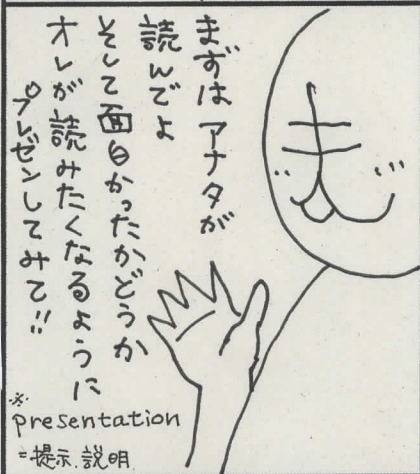 まずはアナタが
読んでよ
そして面白かったかどうか
オレが読みたくなるように
プレゼンしてみて!!
※
presentation
=提示、説明
も